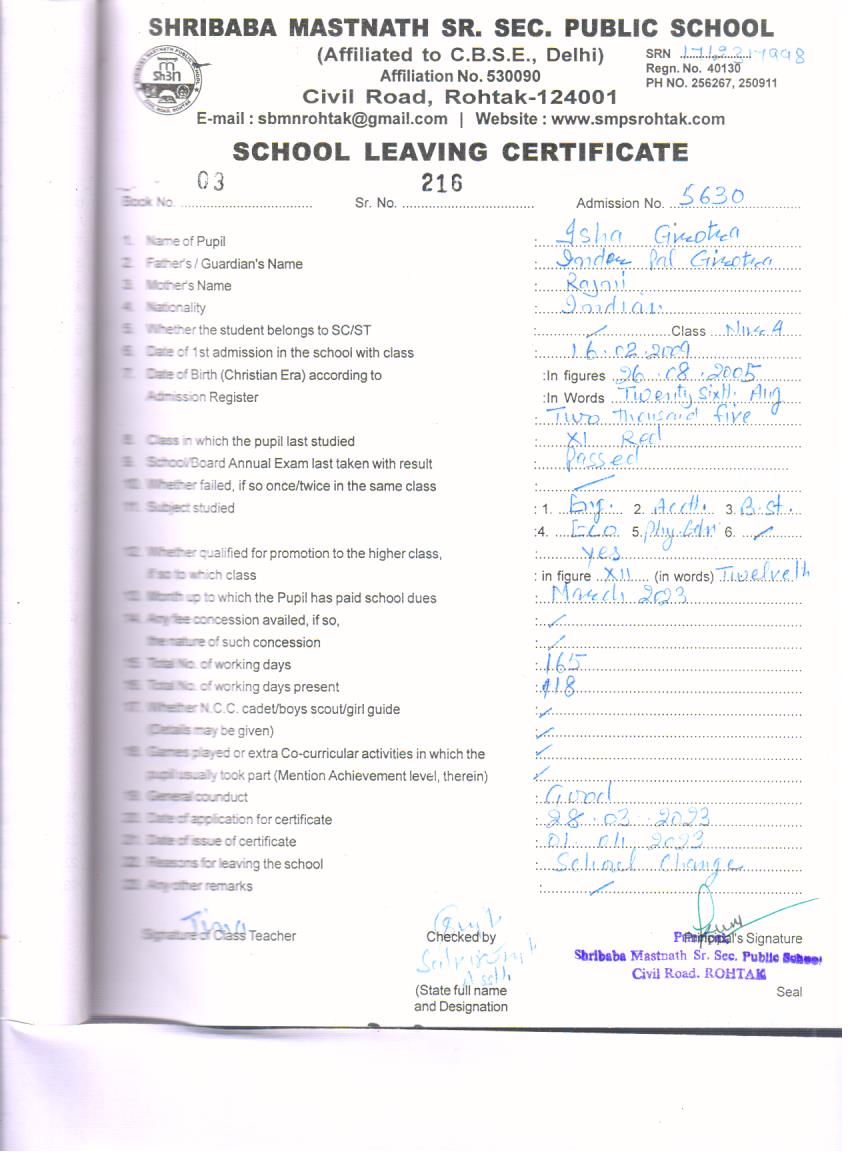 SHRIBABA MASTNATH SR. SEC. PUBLIC SCHOOL
(Affiliated to C.B.S.E., Delhi)
SRN
Affiliation No. 530090
Regn. No. 40130
Civil Road, Rohtak-124001
PH NO. 256267, 250911
E-mail : sbmnrohtak@gmail.com | Website : www.smpsrohtak.com
SCHOOL LEAVING CERTIFICATE
Book No. 03 Sr. No. 216 Admission No. 5630
1. Name of Pupil : Isha Girotra
2. Father's / Guardian's Name : Inder Pal Girotra
3. Mother's Name : Rajni
4. Nationality : Indian
5. Whether the student belongs to SC/ST : Class Nur A
6. Date of 1st admission in the school with class : 16.02.2009
7. Date of Birth (Christian Era) according to :In figures 26.08.2005
Admission Register :In Words Twenty Sixth Aug
: Two thousand five
8. Class in which the pupil last studied : XI Red
9. School/Board Annual Exam last taken with result : Passed
10. Whether failed, if so once/twice in the same class :
11. Subject studied : 1. Eng. 2. Acctt. 3. B.st.
:4. ECO 5. Phy.Edn 6.
12. Whether qualified for promotion to the higher class, : yes
if so to which class : in figure XII (in words) Twelveth
13. Month up to which the Pupil has paid school dues : March 2023
14. Any fee concession availed, if so, :
the nature of such concession :
15. Total No. of working days : 165
16. Total No. of working days present : 118
17. Whether N.C.C. cadet/boys scout/girl guide :
(Details may be given) :
18. Games played or extra Co-curricular activities in which the :
pupil usually took part (Mention Achievement level, therein) :
19. General counduct : Good
20. Date of application for certificate : 28.03.2023
21. Date of issue of certificate : 01.04.2023
22. Reasons for leaving the school : School Change
23. Any other remarks :
Tina
Signature of Class Teacher Checked by Principal's Signature
Shribaba Mastnath Sr. Sec. Public School
Civil Road. ROHTAK
(State full name Seal
and Designation